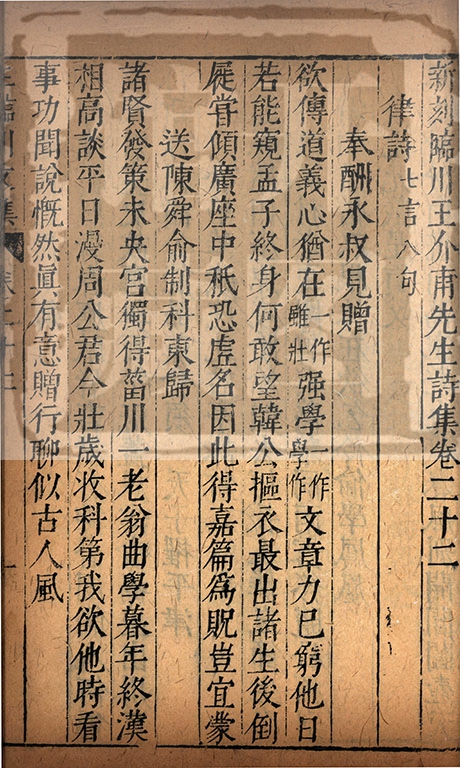 新刻臨川王介甫先生詩集卷二十二
律詩七言八句
奉酬永叔見贈
欲傳道義心猶在一作雖壯强學一作學作文章力已窮他日
若能窺孟子終身何敢望韓公摳衣最出諸生後倒
屣甞傾廣座中秪恐虛名因此得嘉篇爲貺豈宜蒙
送陳舜俞制科東歸
諸賢發策未央宮獨得菑川一老翁曲學暮年終漢
相高談平日漫周公君今壯歲收科第我欲他時看
事功聞說慨然眞有意贈行聊似古人風
王臨川文集 卷二十二 一